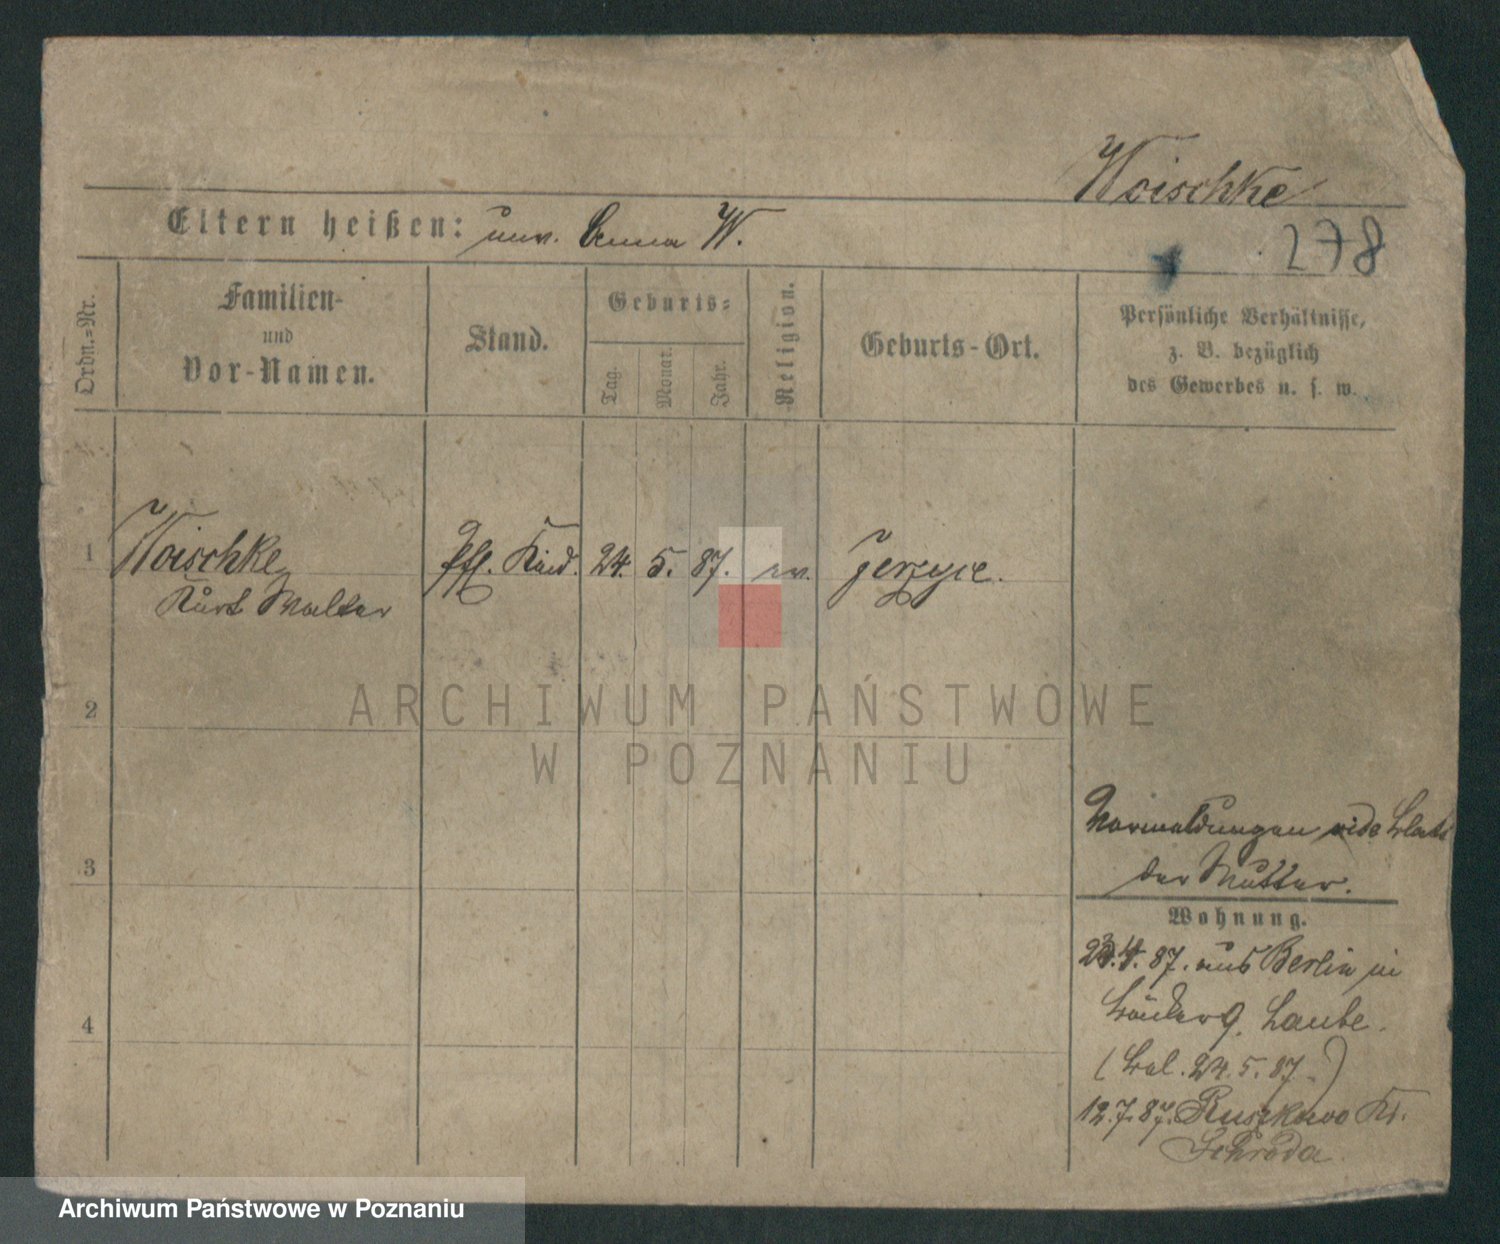 Woischke
Eltern heißen: unv. Anna W.
278
Ordn.=Nr.
Familien-
und
Vor-Namen.
Stand.
Geburts=
Tag.
Monat.
Jahr.
Religion.
Geburts-Ort.
Persönliche Verhältnisse,
z. B. bezüglich
des Gewerbes u. s. w.
1
Woischke
Kurt Walter
Pfl. Kind.
24.
5.
87.
ev.
Jerzyce.
2
ARCHIWUM PAŃSTWOWE
W POZNANIU
3
vide Blatt
der Mutter.
Wohnung.
87. aus Berlin in
9. Laube.
24.5.87.)
12.7.87. Ruszkowo Kr.
Schroda.
4
Archiwum Państwowe w Poznaniu